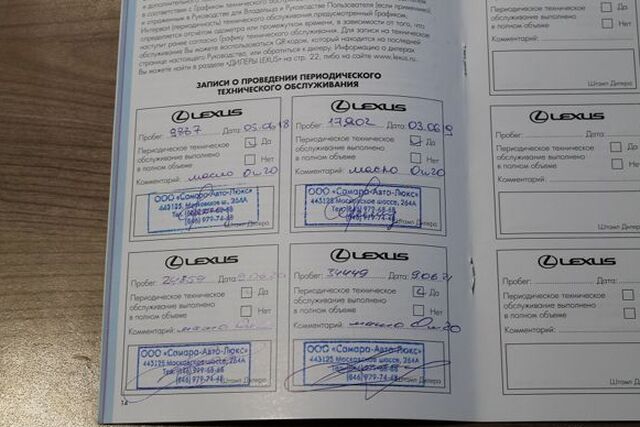 в соответствии с Графиком технического обслуживания, представленным
Интервал (периодичность) технического обслуживания предусмотренный Графиком,
определяется отсчётом одометра или промежутком времени, в зависимости от того, что
наступит ранее согласно Графику технического обслуживания. Для записи на техническое
обслуживание Вы можете воспользоваться QR кодом, который находится на последней
странице настоящего Руководства, или обратиться к дилеру. Информацию о дилерах
Вы можете найти в разделе «ДИЛЕРЫ LEXUS» на стр. 22, либо на сайте www.lexus.ru.
ЗАПИСИ О ПРОВЕДЕНИИ ПЕРИОДИЧЕСКОГО
ТЕХНИЧЕСКОГО ОБСЛУЖИВАНИЯ
LEXUS
Пробег: 9887 Дата: 05.06.18
Периодическое техническое
обслуживание выполнено
в полном объеме
Да
Нет
Комментарий: масло 0w20
ООО «Самара-Авто-Люкс»
443125, Московское ш., 264А
(846) 979-74-48
Штамп Дилера
LEXUS
Пробег: 17902 Дата: 03.06.19
Периодическое техническое
обслуживание выполнено
в полном объеме
Да
Нет
Комментарий: масло 0w20
ООО «Самара-Авто-Люкс»
443125 Московское шоссе, 264А
(846) 979-74-48
Штамп Дилера
LEXUS
Пробег: Дата:
Периодическое техническое
обслуживание выполнено
в полном объеме
Да
Нет
Комментарий: масло
ООО «Самара-Авто-Люкс»
443125 Московское шоссе, 264А
(846) 979-74-48
Штамп Дилера
LEXUS
Пробег: 34449 Дата: 9.06.21
Периодическое техническое
обслуживание выполнено
в полном объеме
Да
Нет
Комментарий: масло 0w20
ООО «Самара-Авто-Люкс»
443125 Московское шоссе, 264А
(846) 979-74-48
Штамп Дилера
14
Периодическое техническое
обслуживание выполнено
в полном объеме
Да
Нет
Комментарий:
Штамп Дилера
LEXUS
Пробег: Дата:
Периодическое техническое
обслуживание выполнено
в полном объеме
Да
Нет
Комментарий:
Штамп Дилера
LEXUS
Пробег: Дата:
Периодическое техническое
обслуживание выполнено
в полном объеме
Комментарий: